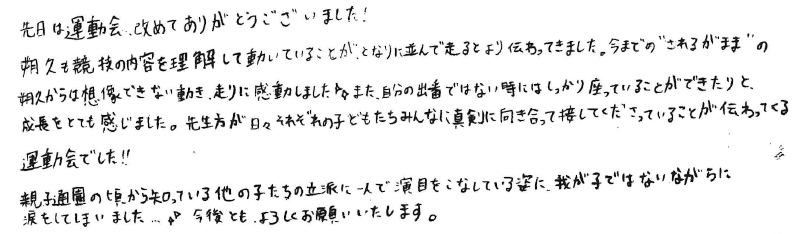 先日は運動会、改めてありがとうございました!
朔久も競技の内容を理解して動いていることが、となりに並んで走るとより伝わってきました。今までの"されるがまま"の
朔久からは想像できない動き、走りに感動しました。また、自分の出番ではない時にはしっかり座っていることができたりと、
成長をとても感じました。先生方が日々それぞれの子どもたちみんなに真剣に向き合って接してくださっていることが伝わってくる
運動会でした!!
親子通園の頃から知っている他の子たちの立派に一人で演目をこなしている姿に、我が子ではないながらに
涙をしてしまいました… 今後とも、よろしくお願いいたします。